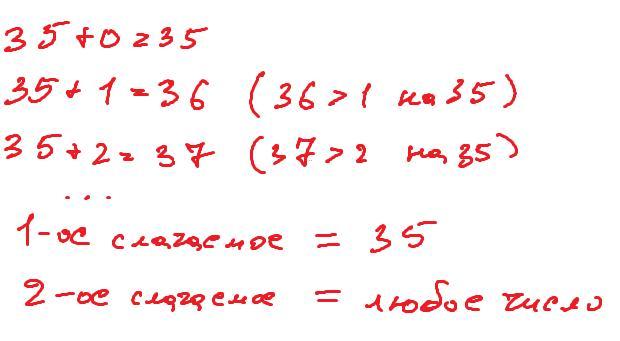 35+0=35
35+1=36 (36>1 на 35)
35+2=37 (37>2 на 35)
...
1-ое слагаемое = 35
2-ое слагаемое = любое число